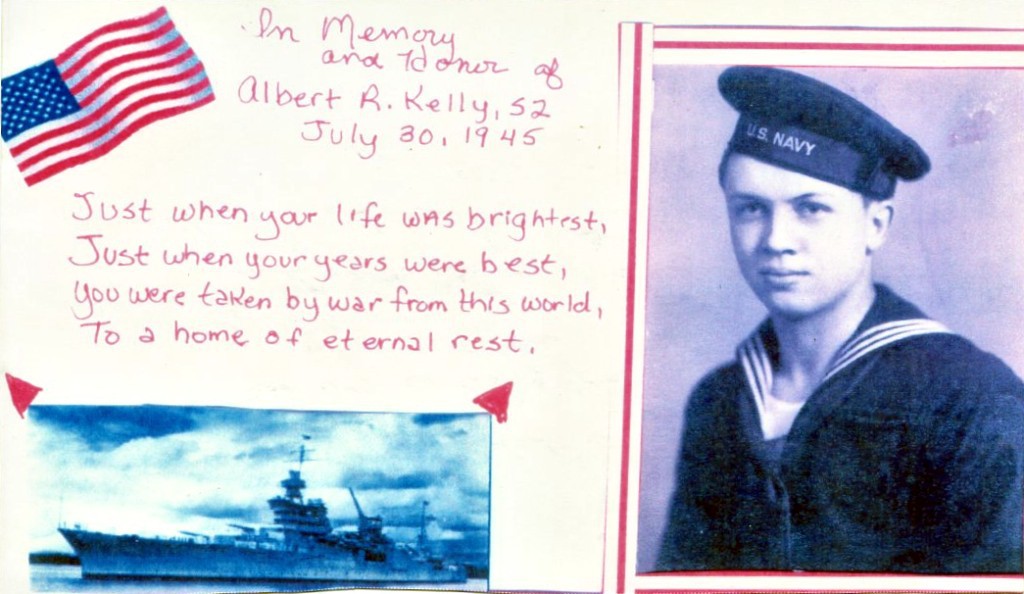 In Memory
and Honor of
Albert R. Kelly, S2
July 30, 1945
Just when your life was brightest,
Just when your years were best,
You were taken by war from this world,
To a home of eternal rest.
U.S. NAVY